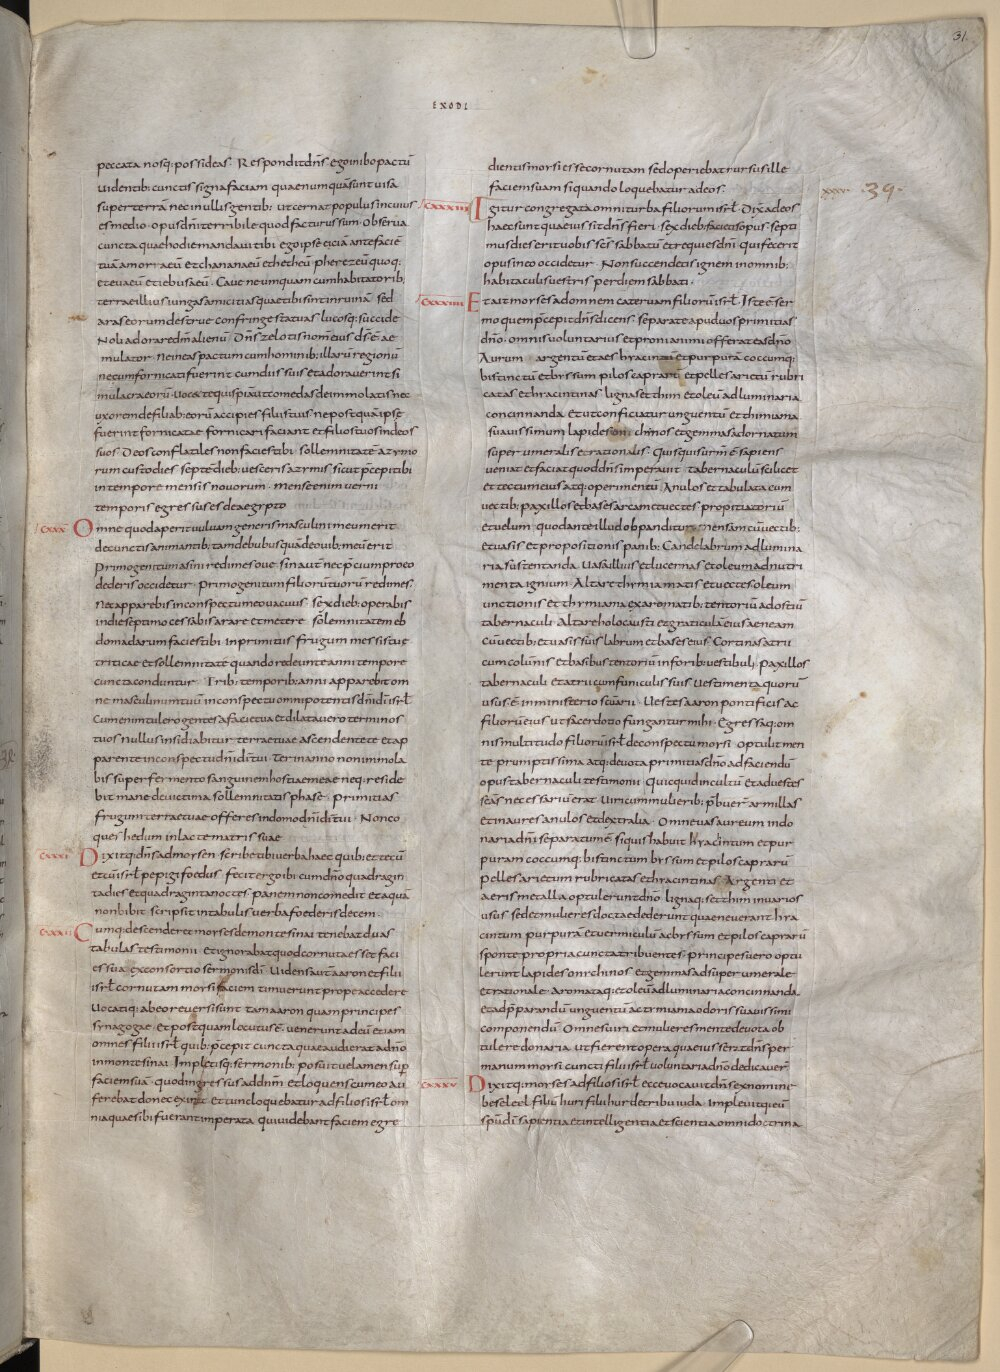 31.
EXODI
peccata nosq; possideas. Respondit dn̄s. ego inibo pactū
videntib; cunctis signa faciam quae numquā sunt visa
super terrā nec in ullis gentib; ut cernat populus in cuius
es medio. opus dn̄i terribile quod facturus sum. Observa
cuncta quae hodie mando tibi ego ipse eiciā ante faciē
tuā amorraeū et chananaeū et hetheū pherezeū quoq;
et evaeū et iebusaeū. Cave ne umquam cum habitatorib;
terrae illius iungas amicitias quae tibi sint in ruinā. sed
aras eorum destrue confringe statuas lucosq; succide
Noli adorare dm̄ alienū. Dn̄s zelotis nom̄ eius. dī ē ae
mulator. Ne ineas pactum cum hominib; illarū regionū
ne cum fornicati fuerint cum diis suis et adoraverint si
mulacra eorū. vocet te quispiā ut comedas de immolatis nec
uxorem de filiab; eorū accipies filiis tuis ne postquā ipse
fuerint fornicatae fornicari faciant et filios tuos in deos
suos. Deos conflatiles non facies tibi. sollemnitatē azymo
rum custodies. septē dieb; vesceris azymis sicut p̄cepi tibi
in tempore mensis novorum. mense enim verni
temporis egressus es de aegypto
CXXX Omne quod aperit vulvam generis masculini meum erit
de cunctis animantib; tam de bubus quā de ovib; meū erit
Primogenitum asini redimes ove. sin aut nec p̄cium pro eo
dederis occidetur. primogenitum filiorū tuorū redimes.
Nec apparebis in conspectu meo vacuus. sex dieb; operabis
in die septimo cessabis arare et metere. sollemnitatem eb
domadarum facies tibi in primitiis frugum messis tuae
triticeae et sollemnitatē quando redeunte anni tempore
cuncta conduntur. Trib; temporib; anni apparebit om
ne masculinum tuū in conspectu omnipotentis dn̄i dī isrl̄
Cum enim tulero gentes a facie tua et dilatavero terminos
tuos nullus insidiabitur terrae tuae ascendente te et ap
parente in conspectu dn̄i dī tui. Ter in anno non immola
bis super fermento sanguinem hostiae meae neq; reside
bit mane de victima sollemnitatis phase. primitias
frugum terrae tuae offeres in domo dn̄i dī tui. Non co
ques hedum in lacte matris suae
CXXXI Dixitq; dn̄s ad moysen. scribe tibi verba haec quib; et tecū
et cū isrl̄ pepigi foedus. fecit ergo ibi cum dn̄o quadragin
ta dies et quadraginta noctes. panem non comedit et aquā
non bibit. scripsit in tabulis verba foederis decem.
CXXXII Cumq; descenderet moyses de monte sinai tenebat duas
tabulas testimonii. et ignorabat quod cornuta esset faci
es sua ex consortio sermonis dī. Videns aut̄ aaron et filii
isrl̄ cornutam moysi faciem timuerunt prope accedere
vocatiq; ab eo reversi sunt tam aaron quam principes
synagogae. et postquam locutus ē. venerunt ad eū etiam
omnes filii isrl̄ quib; p̄cepit cuncta quae audierat a dn̄o
in monte sinai. Impletisq; sermonib; posuit velamen sup̄
faciem suā. quod ingressus ad dn̄m et loquens cum eo au
ferebat donec exiret. et tunc loquebatur ad filios isrl̄ om
nia quae sibi fuerant imperata. qui videbant faciem egre
dientis moysi esse cornutam sed operiebat rursus ille
faciem suam siquando loquebatur ad eos.
xxxv. 39.
CXXXIII Igitur congregata omni turba filiorum isrl̄. Dix̄ ad eos
haec sunt quae iussit dn̄s fieri. sex dieb; facietis opus. septi
mus dies erit vobis sc̄s sabbatū et requies dn̄i. qui fecerit
opus in eo occidetur. Non succendetis ignem in omnib;
habitaculis vestris per diem sabbati.
CXXXIIII Et ait moyses ad omnem catervam filiorū isrl̄. Iste ē ser
mo quem p̄cepit dn̄s dicens. separate apud vos primitias
dn̄o. omnis voluntarius et prono animo offerat eas dn̄o
Aurum argentū et aes hyacintū et purpurā coccumq;
bis tinctū et byssum pilos caprarū et pelles arietū rubri
catas et hyacintinas. ligna setthim et oleū ad luminaria
concinnanda. et ut conficiatur unguentū et thimiama
suavissimum lapides onychinos et gemmas ad ornatum
super umeralis et rationalis. Quisquis urm̄ ē sapiens
veniat et faciat quod dn̄s imperavit. tabernaculū scilicet
et tectum eius atq; operimentū. Anulos et tabulata cum
vectib; paxillos et bases arcam et vectes. propitiatoriū
et velum. quod ante illud obpanditur. mensam cū vectib;
et vasis et propositionis panib; Candelabrum ad lumina
ria sustentanda. Vasa illius et lucernas et oleum ad nutri
menta ignium. Altare thymiamatis et vectes oleum
unctionis et thymiama ex aromatib; tentoriū ad ostiū
tabernaculi. Altare holocausti et graticulā eius aeneam
cū vectib; et vasis suis labrum et basēs eius. Cortinas atrii
cum colūnis et basibus tentoriū in forib; vestibuli. paxillos
tabernaculi et atrii cum funiculis suis. Vestimenta quorū
usus ē in ministerio sc̄uarii. Vestes aaron pontificis ac
filiorū eius ut sacerdotio fungantur mihi. Egressaq; om
nis multitudo filiorū isrl̄ de conspectu moysi. optulit men
te promptissima atq; devota primitias dn̄o ad faciendū
opus tabernaculi testimonii. Quicquid in cultū et ad vestes
sc̄as necessariū erat. Viri cum mulierib; p̄buer̄ armillas
et inaures anulos et dextralia. Omne vas aureum in do
naria dn̄i separatum ē. siquis habuit hyacintum et pur
puram coccumq; bis tinctum byssum et pilos caprarū
Pelles arietum rubricatas et hyacintinas. Argenti et
aeris metalla optulerunt dn̄o. lignaq; setthim in varios
usus. sed et mulieres doctae dederunt quae neverant hya
cintum purpuram et vermiculū ac byssum et pilos caprarū
sponte propria cuncta tribuentes. principes vero optu
lerunt lapides onychinos et gemmas ad super umerale
et rationale. Aromataq; et oleū ad luminaria concinnanda
et ad p̄parandū unguentū ac tymiama odoris suavissimi
componendū. Omnes viri et mulieres mente devota ob
tulere donaria. ut fierent opera quae iusserat dn̄s per
manum moysi. cuncti filii isrl̄ voluntaria dn̄o dedicaver̄
CXXXV Dixitq; moyses ad filios isrl̄. ecce vocavit dn̄s ex nomine
beseleel filiū huri filii hur de tribu iuda. Implevitq; eū
sp̄u dī sapientia et intellegentia et scientia omni doctrina